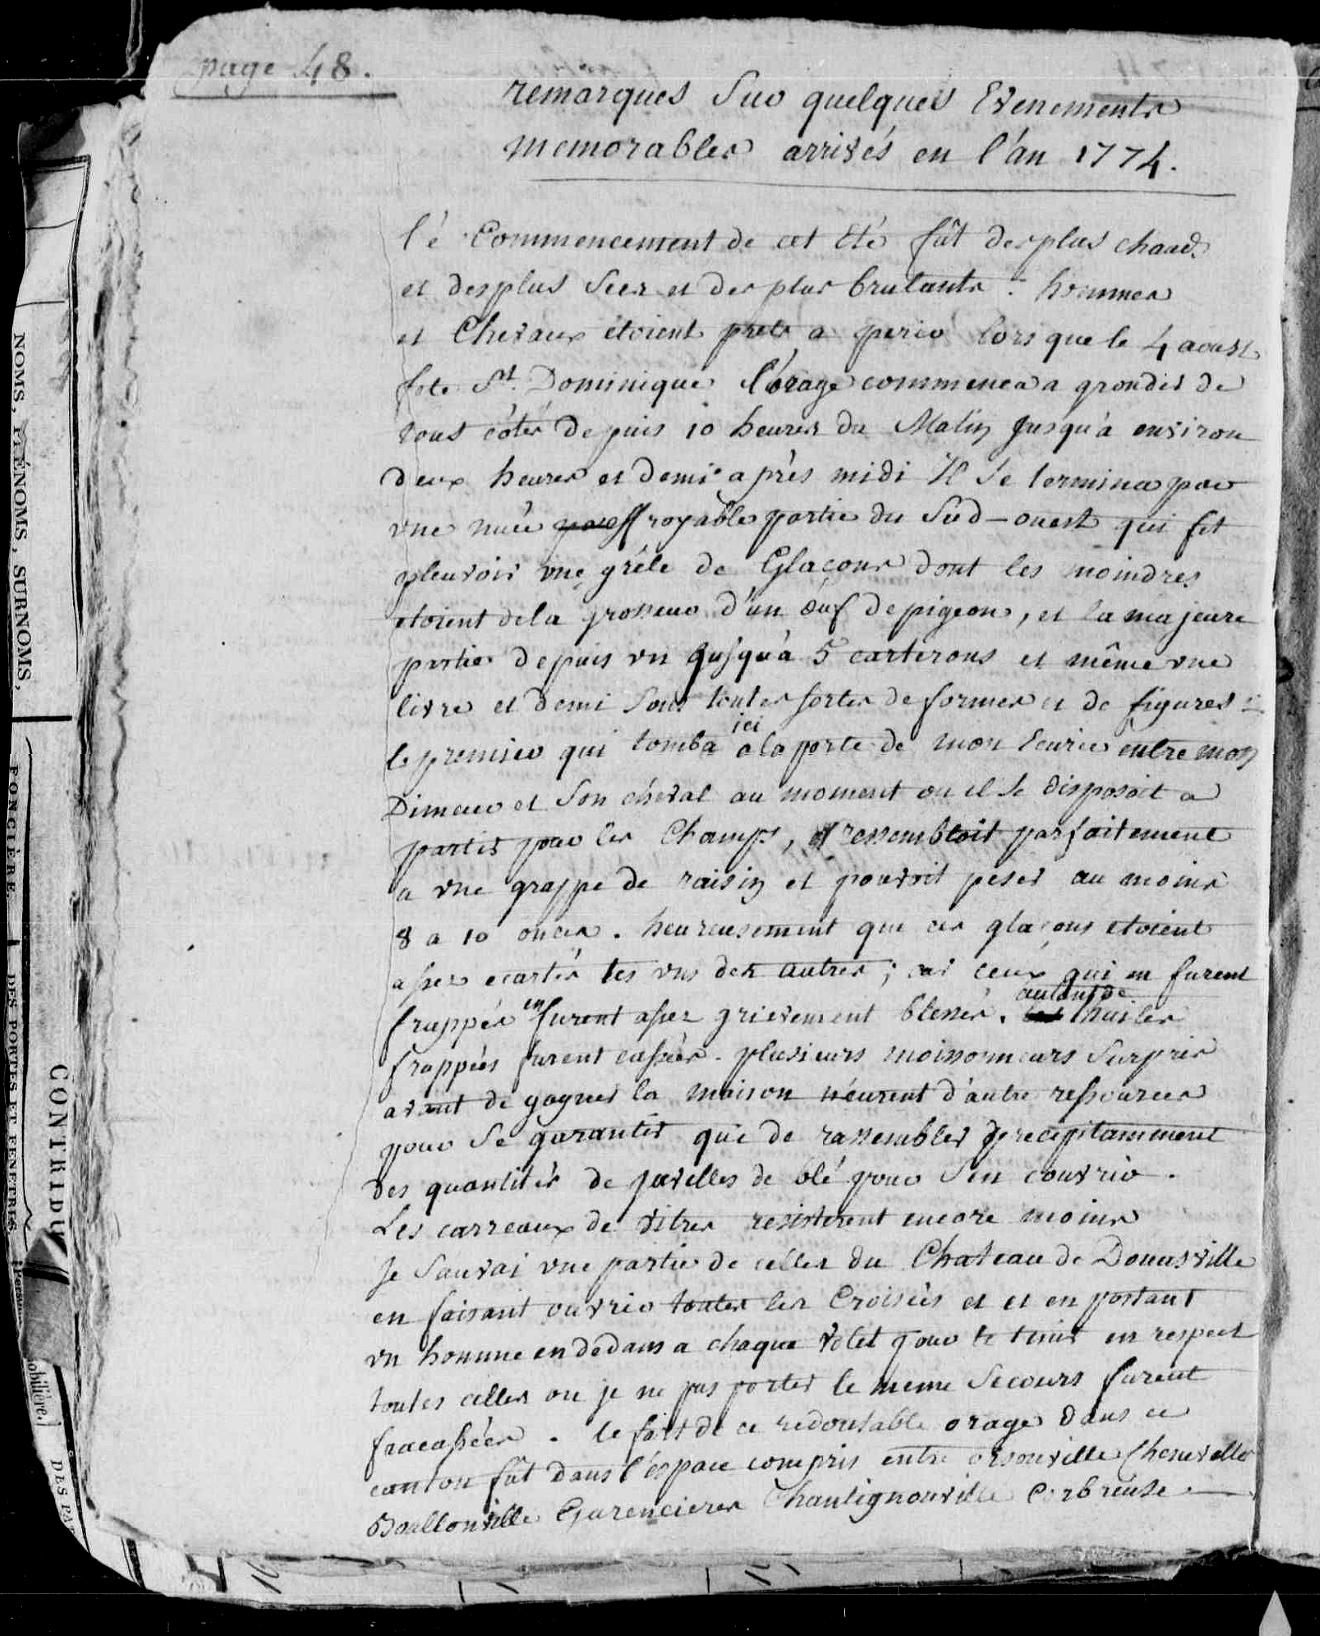 page 48.
remarques Sur quelques Evenements
memorables arrivés en l'an 1774.
lé Commencement de cet été fût des plus chauds
et des plus Secs et des plus brulants : hommes
et Chevaux étoient prets a perir lors que le 4 aoust
fete St. Dominique l'orage commenca a gronder de
tous côtés depuis 10 heures du Matin Jusqu'à environ
deux heures et demi après midi Il Se termina par
vne nuée effroyable partie du Sud-ouest qui fit
pleuvoir vne grêle de Glaçons dont les moindres
étoient de la grosseur d'un œuf de pigeon, et la majeure
partie depuis un Jusqu'à 5 carterons et même vne
livre et demi Sous toutes sortes de formes et de figures :
le premier qui tomba ici a la porte de mon Ecurie entre mon
Dimeur et Son cheval au moment ou il Se disposoit a
partir pour les Champs, ressembloit parfaitement
a vne grappe de raisin et pouvoit peser au moins
8 a 10 onces. heureusement que ces glaçons etoient
assez ecartés les vns des autres ; car ceux qui en furent
frappés en furent assez grievement blessés. autant de tuiles
frappées furent cassées. plusieurs moissonneurs Surpris
avant de gagner la maison n'eurent d'autre ressources
pour Se garantir que de rassembler precipitamment
des quantités de javelles de blé pour S'en couvrir.
Les carreaux de vitres resisterent encore moins
Je Sauvai vne partie de celles du Chateau de Donasville
en faisant ouvrir toutes les Croisées et et en postant
vn homme en dedans a chaque volet pour le tenir en respect
toutes celles ou je ne pus porter le meme Secours furent
fracassées. le fort de ce redoutable orage dans ce
canton fût dans l'éspace compris entre orsonville Chenevelle
Boullonville Garencieres Chantignonville Corbreuse.
NOMS, PRÉNOMS, SURNOMS,
FONCIÈRE.
DES PORTES ET FENÊTRES
CONTRIBU
obilière.
DES PA